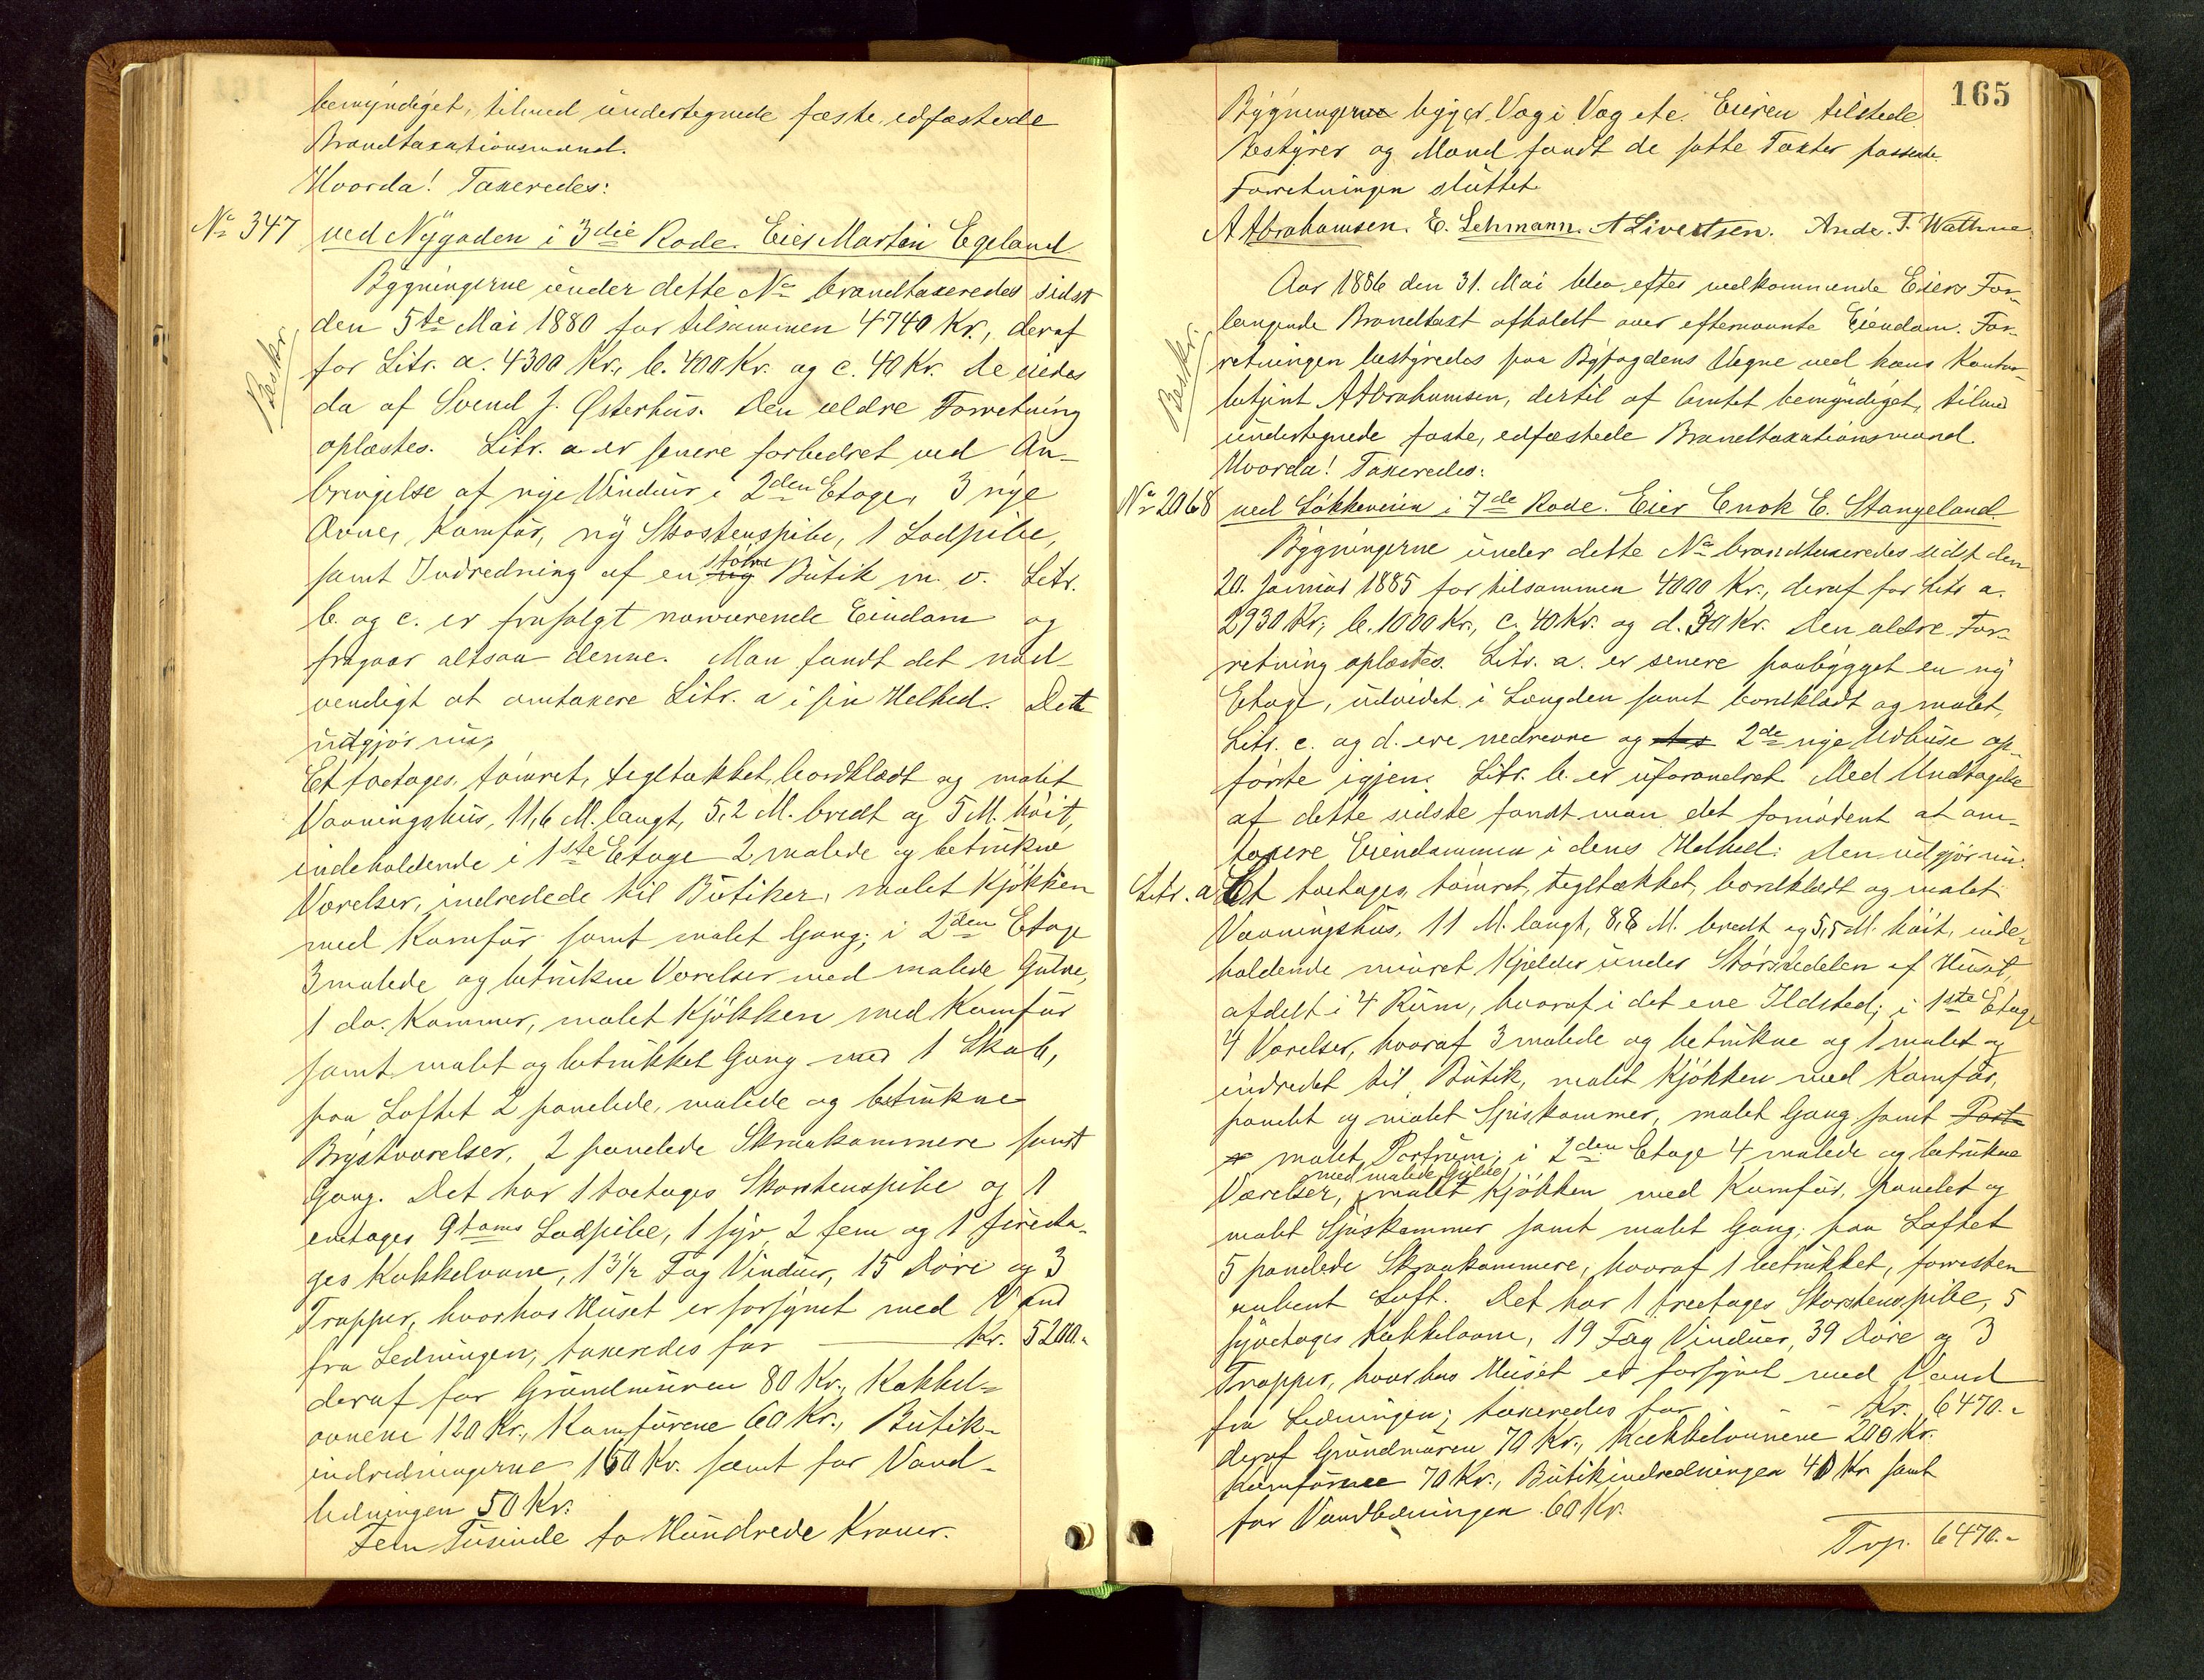 bemyndiget, tilmed undertegnede faste edfæstede
Brandtaxationsmænd.
Hvorda! Taxeredes:
No 347 ved Nygaden i 3die Rode. Eier Martin Egeland
Bygningerne under dette No brandtaxeredes sidst
Beskr.
den 5te Mai 1880 for tilsammen 4740 Kr., deraf
for Litr. a. 4300 Kr., b. 400 Kr. og c. 40 Kr. De eiedes
da af Svend J. Østerhus. Den ældre Forretning
oplæstes. Litr. a er senere forbedret ved An-
bringelse af nye Vinduer i 2den Etage, 3 nye
Ovne, Komfür, ny Skostenspibe, 1 Lodpibe,
samt Indredning af en ny større Butik m. v. Litr.
b. og c. er frasolgt nærværende Eiendom og
fragaar altsaa denne. Man fandt det nød-
vendigt at omtaxere Litr. a i sin Helhed. Dette
udgjør nu:
Et toetages, tømret, tegltækket, bordklædt og malet
Vaaningshus, 11,6 M. langt, 5,2 M. bredt og 5 M. høit,
indeholdende i 1ste Etage 2 malede og betrukne
Værelser, indredede til Butiker, malet Kjøkken
med Komfür samt malet Gang; i 2den Etage
3 malede og betrukne Værelser med malede Gulve,
1 do. Kammer, malet Kjøkken med Komfür
samt malet og betrukket Gang med 1 Skab,
paa Loftet 2 panelede, malede og betrukne
Brystværelser, 2 panelede Skraakammere samt
Gang. Det har 1 toetages Skorstenspibe og 1
entages 9toms Lodpibe, 1 syv, 2 fem og 1 fireeta-
ges Kakkelovne, 13 1/2 Fag Vinduer, 15 Døre og 3
Trapper, hvorhos Huset er forsynet med Vand
fra Ledningen; taxeredes for Kr. 5200.-
deraf for Grundmuren 80 Kr., Kakkel-
ovnene 120 Kr., Komfürene 60 Kr., Butik-
indredningerne 160 Kr. samt for Vand-
ledningen 50 Kr.
Fem Tusinde to Hundrede Kroner.
165
Bygningerne bygger Væg i Væg etc. Eieren tilstede.
Bestyrer og Mænd fandt de satte Taxter passende.
Forretningen sluttet.
A Abrahamsen. E. Lehmann. A Sivertsen. Ande. T. Wathne.
Aar 1886 den 31. Mai blev efter vedkommende Eiers For-
langende Brandtaxt afholdt over efternævnte Eiendom. For-
Beskr.
retningen bestyredes paa Byfogdens Vegne ved hans Kontor-
betjent A Abrahamsen, dertil af Amtet bemyndiget, tilmed
undertegnede faste, edfæstede Brandtaxationsmænd.
Hvorda! Taxeredes:
No 2068 ved Løkkeveien i 7de Rode. Eier Enok E. Stangeland.
Bygningerne under dette No brandtaxeredes sidst den
20. Januar 1885 for tilsammen 4000 Kr., deraf for Litr a.
2930 Kr., b. 1000 Kr., c. 40 Kr. og d. 30 Kr. Den ældre For-
retning oplæstes. Litr. a. er senere paabygget en ny
Etage, udvidet i Længden samt bordklædt og malet,
Litr. c. og d. ere nedrevne og 2de nye Udhuse op-
førte igjen. Litr. b. er uforandret. Med Undtagelse
af dette sidste fandt man det fornødent at om-
taxere Eiendommen i dens Helhed. Den udgjør nu:
Litr. a Et toetages, tømret, tegltækket, bordklædt og malet
Vaaningshus, 11 M. langt, 8,8 M. bredt og 5,5 M. høit, inde-
holdende muret Kjelder under Størstedelen af Huset,
afdelt i 4 Rum, hvoraf i det ene Ildsted; i 1ste Etage
4 Værelser, hvoraf 3 malede og betrukne og 1 malet og
indredet til Butik, malet Kjøkken med Komfür,
panelet og malet Spiskammer, malet Gang samt Port-
malet Portrum; i 2den Etage 4 malede og betrukne
Værelser, med malede Gulve, malet Kjøkken med Komfür, panelet og
malet Spiskammer samt malet Gang; paa Loftet
5 panelede Skraakammere, hvoraf 1 betrukket, forresten
aabent Loft. Det har 1 treetages Skorstenspibe, 5
syvetages Kakkelovne, 19 Fag Vinduer, 39 Døre og 3
Trapper, hvorhos Huset er forsynet med Vand
fra Ledningen; taxeredes for - - Kr. 6470.-
deraf Grundmuren 70 Kr., Kakkelovnene 200 Kr.
Komfürene 70 Kr., Butikindredningen 40 Kr samt
for Vandledningen 60 Kr.
Trp. 6470.-